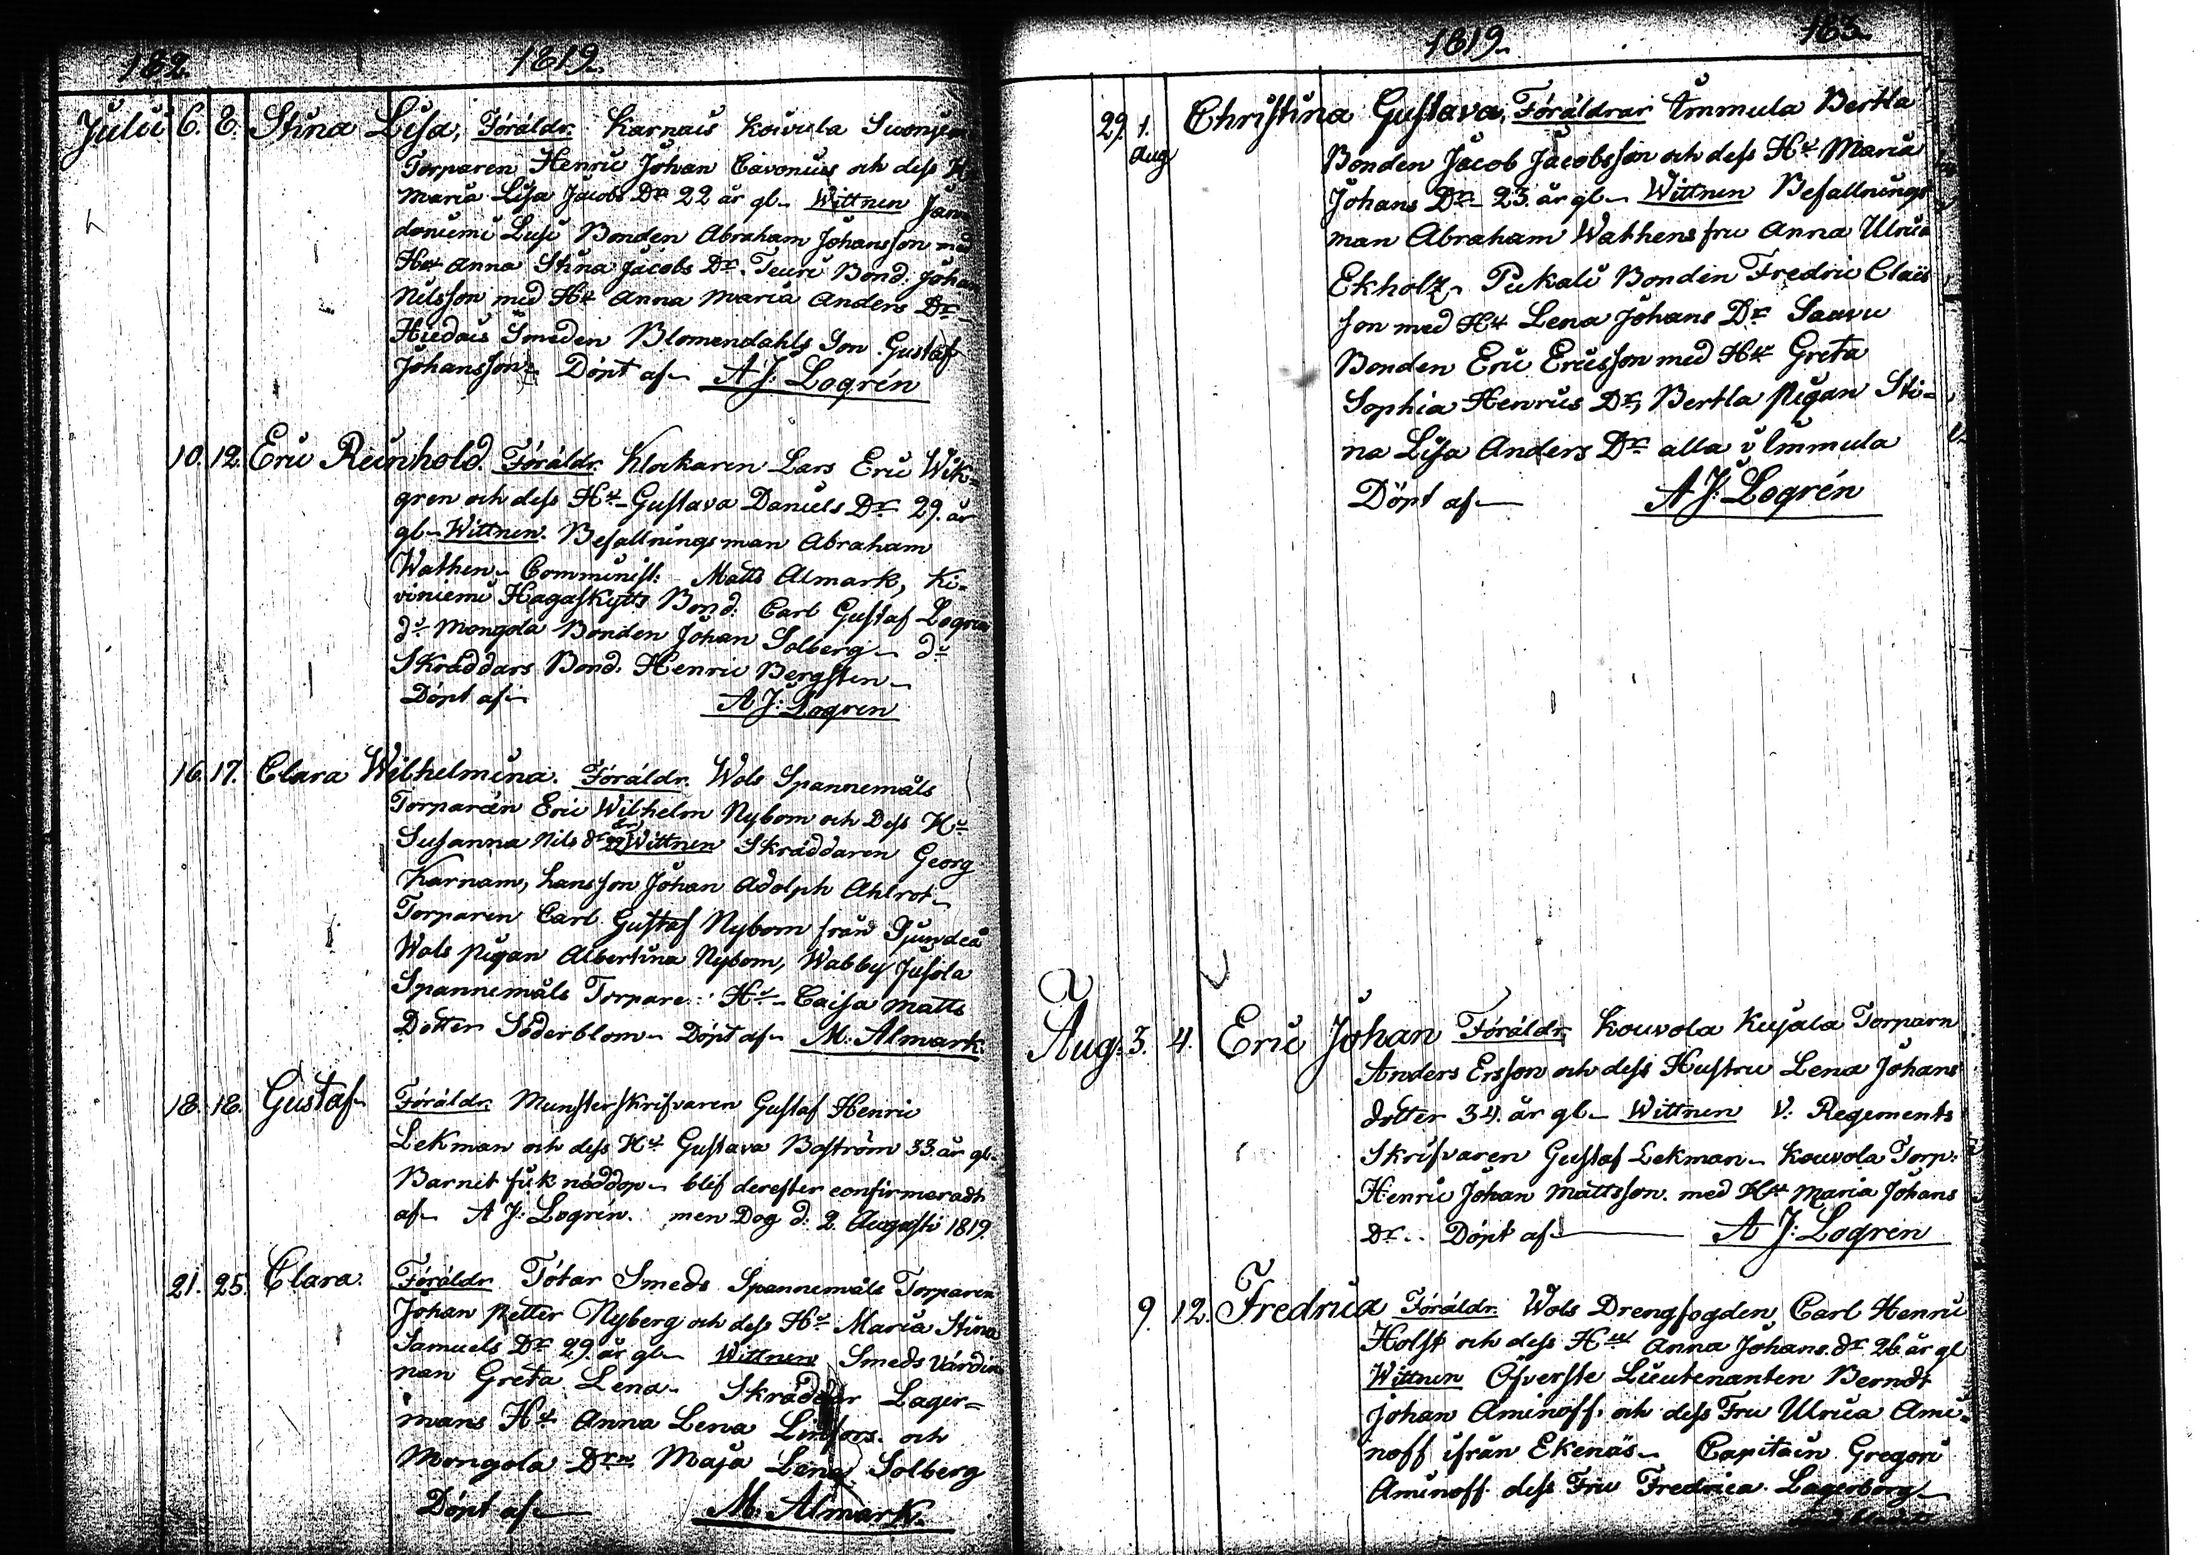 182. 1819.
Julii 6. 8. Stina Lisa, Föräldr. Karnais Koivula
Torparen Henric Johan Cavonius och dess
Maria Lisa Jacobs Dr 22 år gl. Wittnen
Bonden Abraham Johansson med
Hu Anna Stina Jacobs Dr. Teuri Bond. Johan
Nilsson med Hu Anna Maria Anders Dr
Hiedais Smeden Blomendahls Son Gustaf
Johansson. Döpt af A J: Logrén
10. 12. Eric Reinhold. Föräldr. Klockaren Lars Eric Wik-
gren och dess Hu Gustava Daniels Dr 29. år
gl. Wittnen. Befallningsman Abraham
Wathen. Comminist: Matts Almark, Ki-
viniemi Hagaskytts Bond. Carl Gustaf Logren
do Mongola Bonden Johan Solberg do
Skräddars Bond. Henric Bergsten
Döpt af A J: Logren
16. 17. Clara Wilhelmina. Föräldr. Wols Spannemåls
Torparen Eric Wilhelm Nybom och Dess Hu
Susanna Nils dr 22 år Wittnen Skräddaren Georg
Karnam, hans son Johan Adolph Ahlrot
Torparen Carl Gustaf Nybom från Sjundeå
Wols pigan Albertina Nybom, Wabby Jusola
Spannemåls Torpare Hu Caisa Matts
Dotter Söderblom Döpt af M. Almark.
18. 18. Gustaf Föräldr. Munsterskrifvaren Gustaf Henric
Lekman och dess Hu Gustava Boström 33. år gl.
Barnet fick nöddop blef derefter confirmeradt
af A J: Logrén. men Dog d. 2. Augusti 1819.
21. 25. Clara. Föräldr Tötar Smeds Spannemåls Torparen
Johan Petter Nyberg och dess Hu Maria Stina
Samuels Dr 29. år gl Wittnen Smeds Värdin
nan Greta Lena. Skräddar Lager-
mans Hu Anna Lena Linfors. och
Mongola Drn Maja Lena Solberg
Döpt af M. Almark.
1819. 183.
29. 1. Aug Christina Gustava, Föräldrar Immula Bertla
Bonden Jacob Jacobsson och dess Hu Maria
Johans Dr 23. år gl Wittnen Befallnings
man Abraham Wathens fru Anna Ulrica
Ekholtz Pukali Bonden Fredric Claes
son med Hu Lena Johans Dr Saavu
Bonden Eric Ericsson med Hu Greta
Sophia Henrics Dr, Bertla pigan Sti-
na Lisa Anders Dr alla i Immula
Döpt af A J: Logrén
Aug. 3. 4. Eric Johan Föräldr. Kouvola Kujala Torparn
Anders Ersson och dess Hustru Lena Johans
dotter 34. år gl. Wittnen V. Regements
Skrifvaren Gustaf Lekman Kouvola Torp.
Henric Johan Mattsson med Hu Maria Johans
Dr. Döpt af A J: Logren
9. 12. Fredrica Föräldr. Wols Drengfogden Carl Henric
Holst och dess Hu Anna Johans dr 26 år gl
Wittnen Öfverste Lieutenanten Berndt
Johan Aminoff och dess Fru Ulrica Ami-
noff ifrån Ekenäs Capitain Gregori
Aminoff dess Fru Fredrica Lagerborg